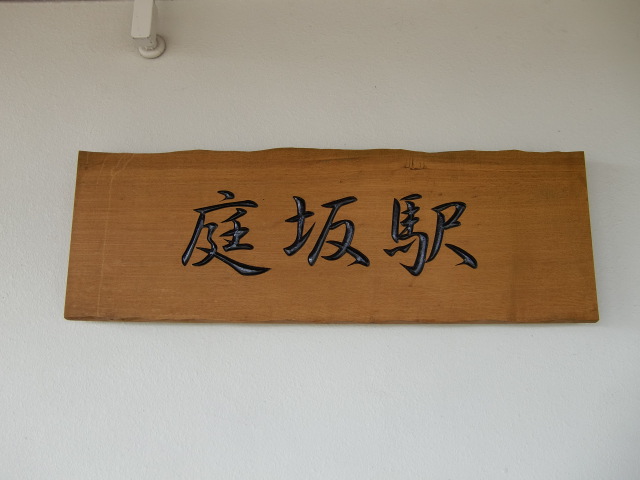 庭坂駅